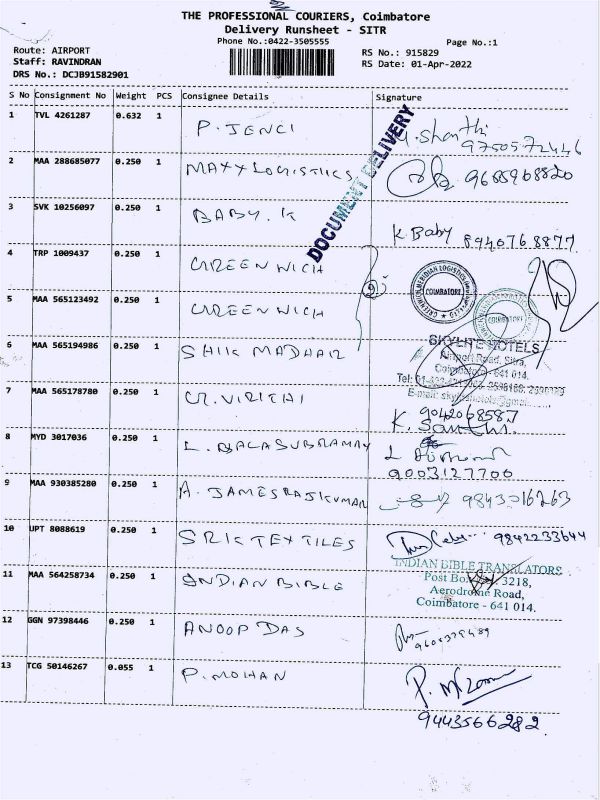 THE PROFESSIONAL COURIERS, Coimbatore
Delivery Runsheet - SITR
Phone No.:0422-3505555
Page No.:1
Route: AIRPORT
Staff: RAVINDRAN
DRS No.: DCJB91582901
RS No.: 915829
RS Date: 01-Apr-2022
S No Consignment No Weight PCS Consignee Details Signature
DOCUMENT DELIVERY
1 TVL 4261287 0.632 1 P. JENCI
9750572446
2 MAA 288685077 0.250 1 MAXX LOGISTIICS
3 SVK 10256097 0.250 1 BABY. K K Baby 8940768877
4 TRP 1009437 0.250 1 GREENWICH
COIMBATORE
5 MAA 565123492 0.250 1 GREENWICH
COIMBATORE
6 MAA 565194986 0.250 1 SHIK MADHAR
SKYLITE HOTELS
Airport Road, Sitra,
Coimbatore - 641 014.
7 MAA 565178780 0.250 1 9042068587
8 MYD 3017036 0.250 1 L. BALASUBRAMANY
9003127700
9 MAA 930385280 0.250 1 A. JAMESRAJKUMAR 9843016263
10 UPT 8088619 0.250 1 SRIK TEXTILES 9842233644
11 MAA 564258734 0.250 1 INDIAN BIBLE
INDIAN BIBLE TRANSLATORS
Post Box 3218,
Aerodrome Road,
Coimbatore - 641 014.
12 GGN 97398446 0.250 1 ANOOP DAS
13 TCG 50146267 0.055 1 P. MOHAN
9443566282